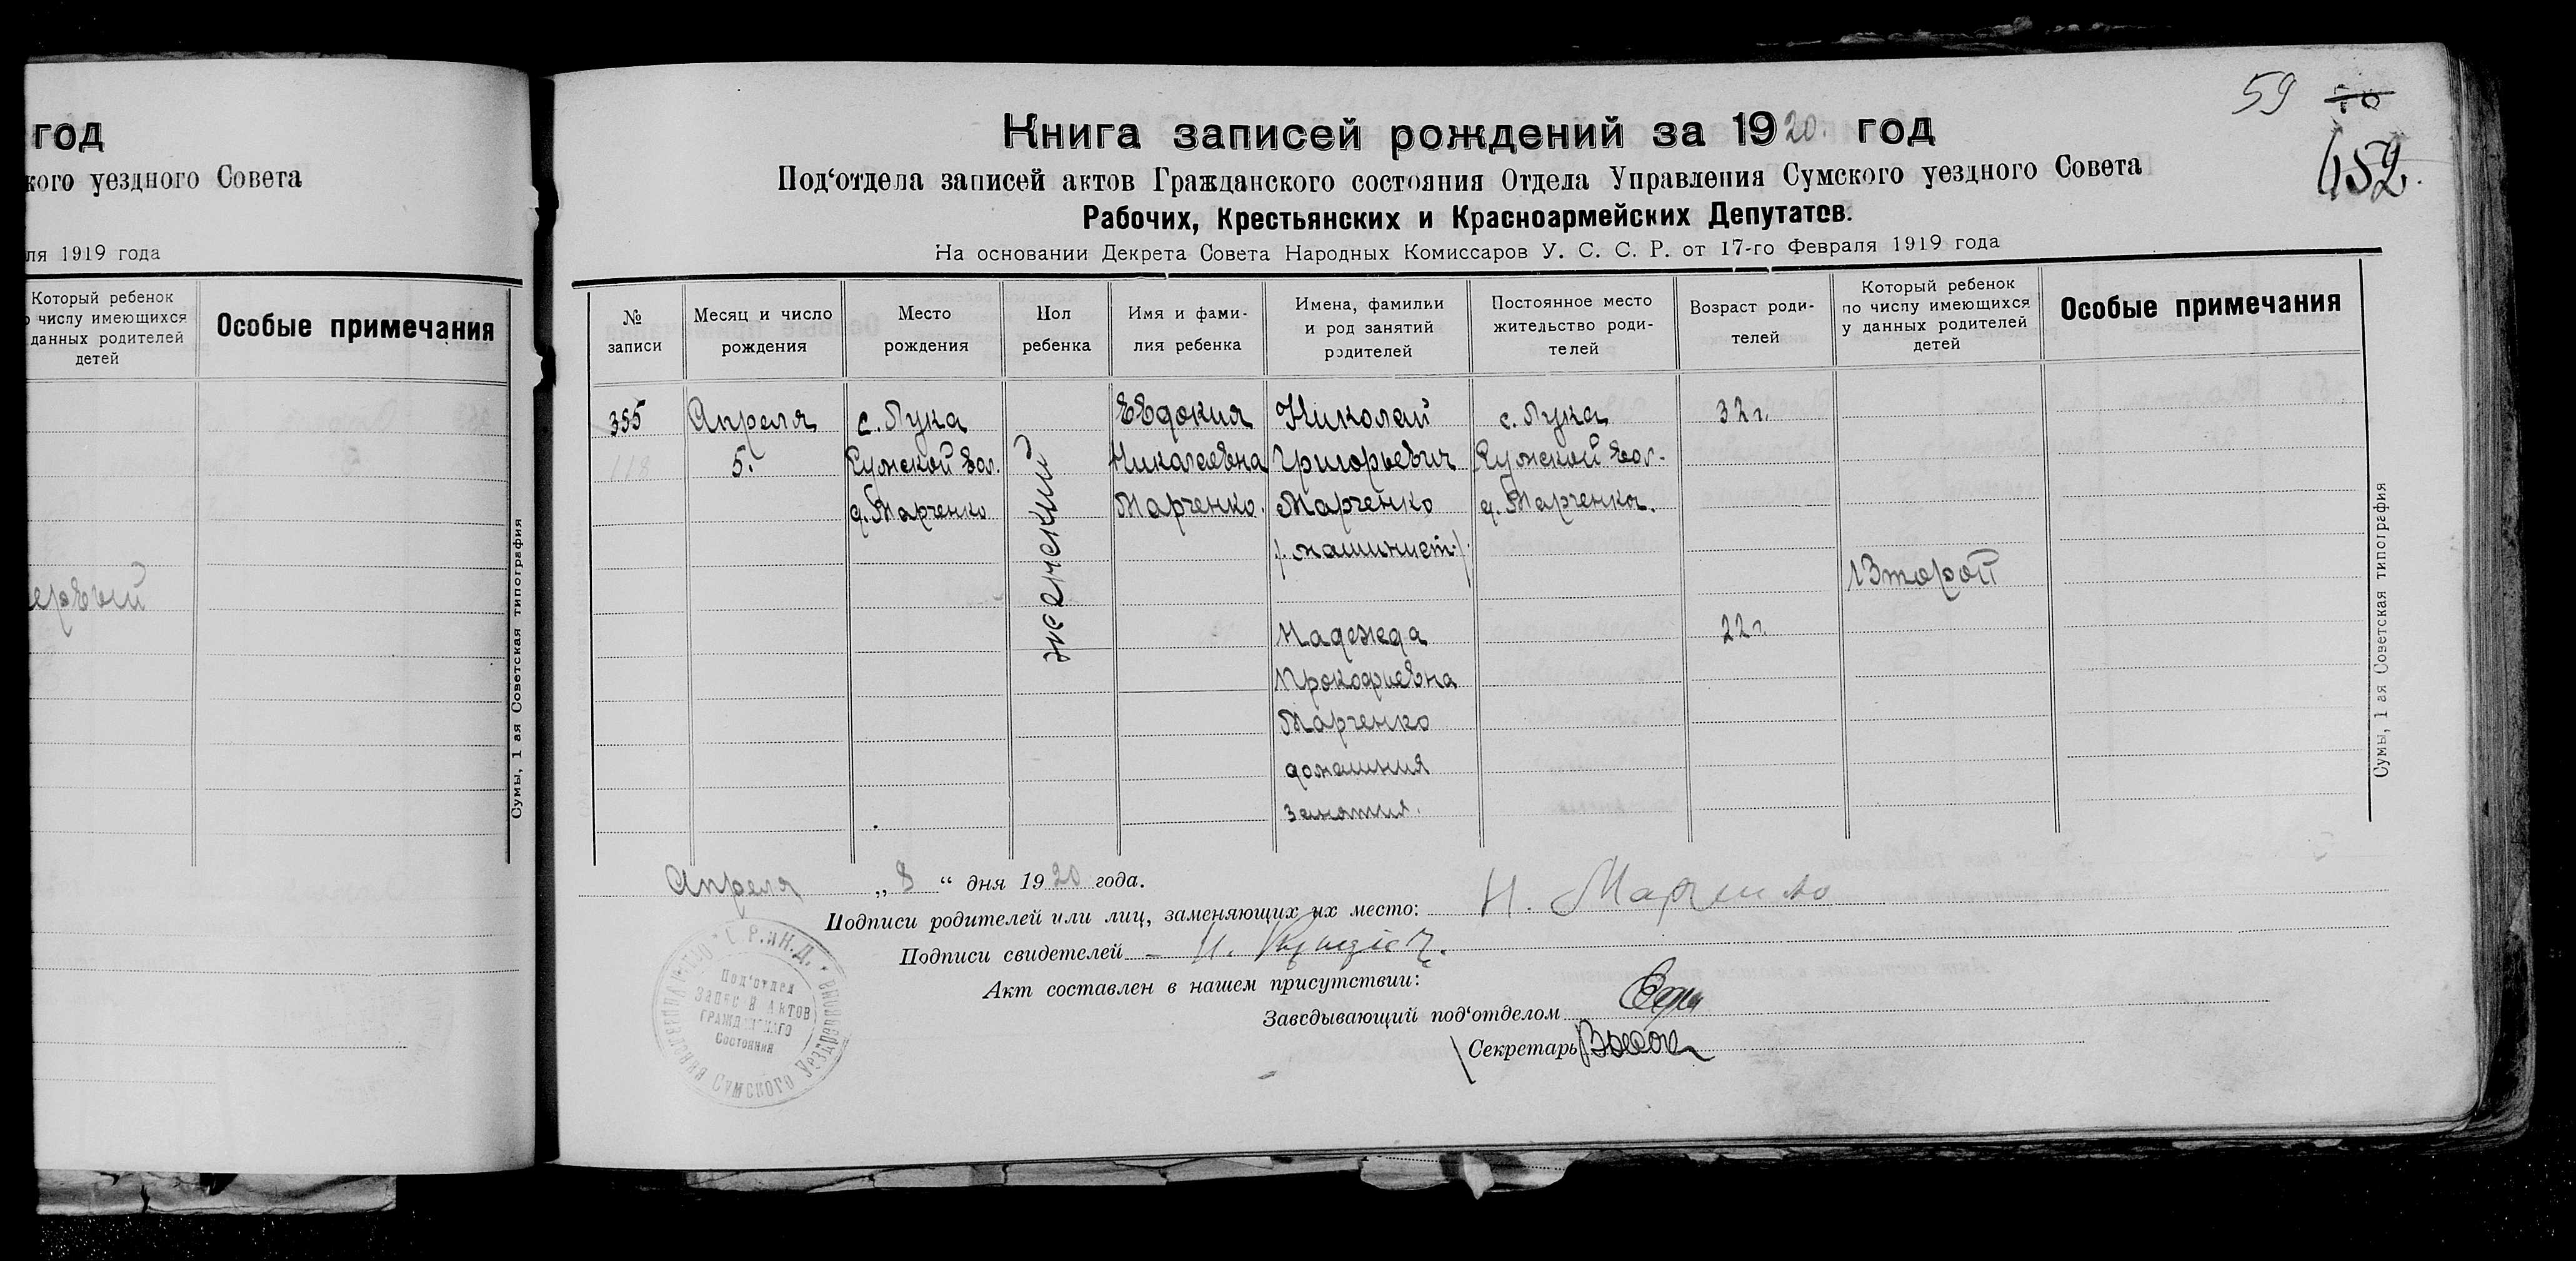 год
кого уездного Совета
ля 1919 года
Который ребенок
о числу имеющихся
данных родителей
детей
Особые примечания
ервый
Сумы, 1 ая Советская типография
59
452.
Книга записей рождений за 1920. год
Под‘отдела записей актов Гражданского состояния Отдела Управления Сумского уездного Совета
Рабочих, Крестьянских и Красноармейских Депутатов.
На основании Декрета Совета Народных Комиссаров У. С. С. Р. от 17-го Февраля 1919 года
№
записи
Месяц и число
рождения
Место
рождения
Пол
ребенка
Имя и фами-
лия ребенка
Имена, фамилии
и род занятий
родителей
Постоянное место
жительство роди-
телей
Возраст роди-
телей
Который ребенок
по числу имеющихся
у данных родителей
детей
Особые примечания
355
118
Апреля
5.
с. Лука
вол.
д. Марченко
женский
Евдокия
Николаевна
Марченко.
Николай
Григорьевич
Марченко
/. машинист./.
Надежда
Прокофиевна
Марченко
домашния
занятия.
с. Лука
вол.
д. Марченко.
32 г.
22 г.
Второй
Сумы, 1 ая Советская типография
Апреля „ 8 “ дня 1920 года.
Подписи родителей или лиц, заменяющих их место: Н. Марченко
Подписи свидетелей
Акт составлен в нашем присутствии:
Заведывающий под‘отделом
Секретарь
Под‘отдел
Запис и Актов
Гражданского
Состояния
Сумского Уезд